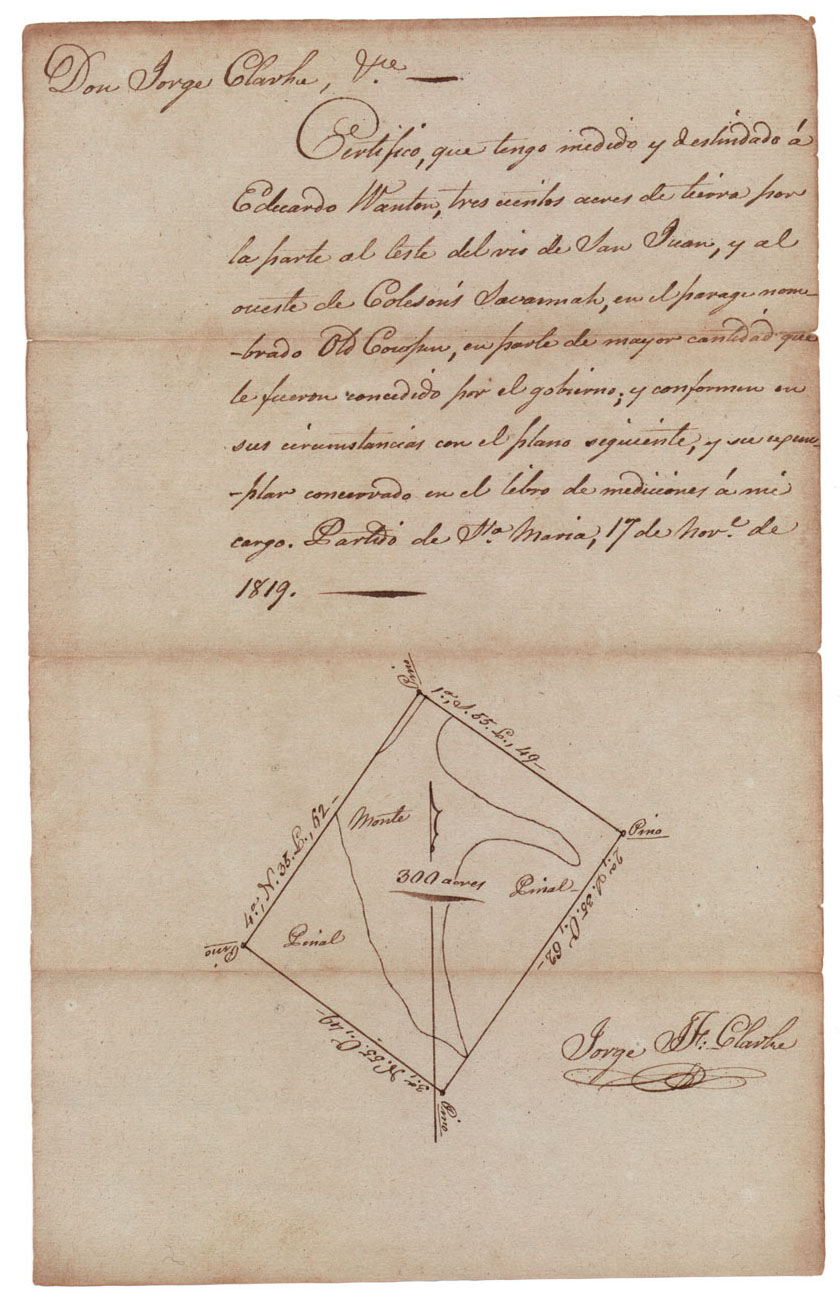 Don Jorge Clarke, &ce
Certifico, que tengo medido y deslindado á
Eduardo Wanton, tres cientos acres de tierra por
la parte al leste del rio de San Juan, y al
oueste de Coleson's Savannah, en el parage nom-
-brado Old Cowpen, en parte de mayor cantidad que
le fueron concedido por el gobierno; y conformen en
sus circumstancias con el plano siguiente, y su exem-
-plar concervado en el libro de mediciones á mi
cargo. Partido de Sta Maria, 17 de Novre de
1819.
Pino
1a, S. 55. L., 49-
Pino
2a, S. 35. O., 62-
Pino
3a, N. 55. O., 49-
Pino
4a, N. 35. L., 62-
Monte
300 acres
Pinal
Pinal
Jorge J. F: Clarke